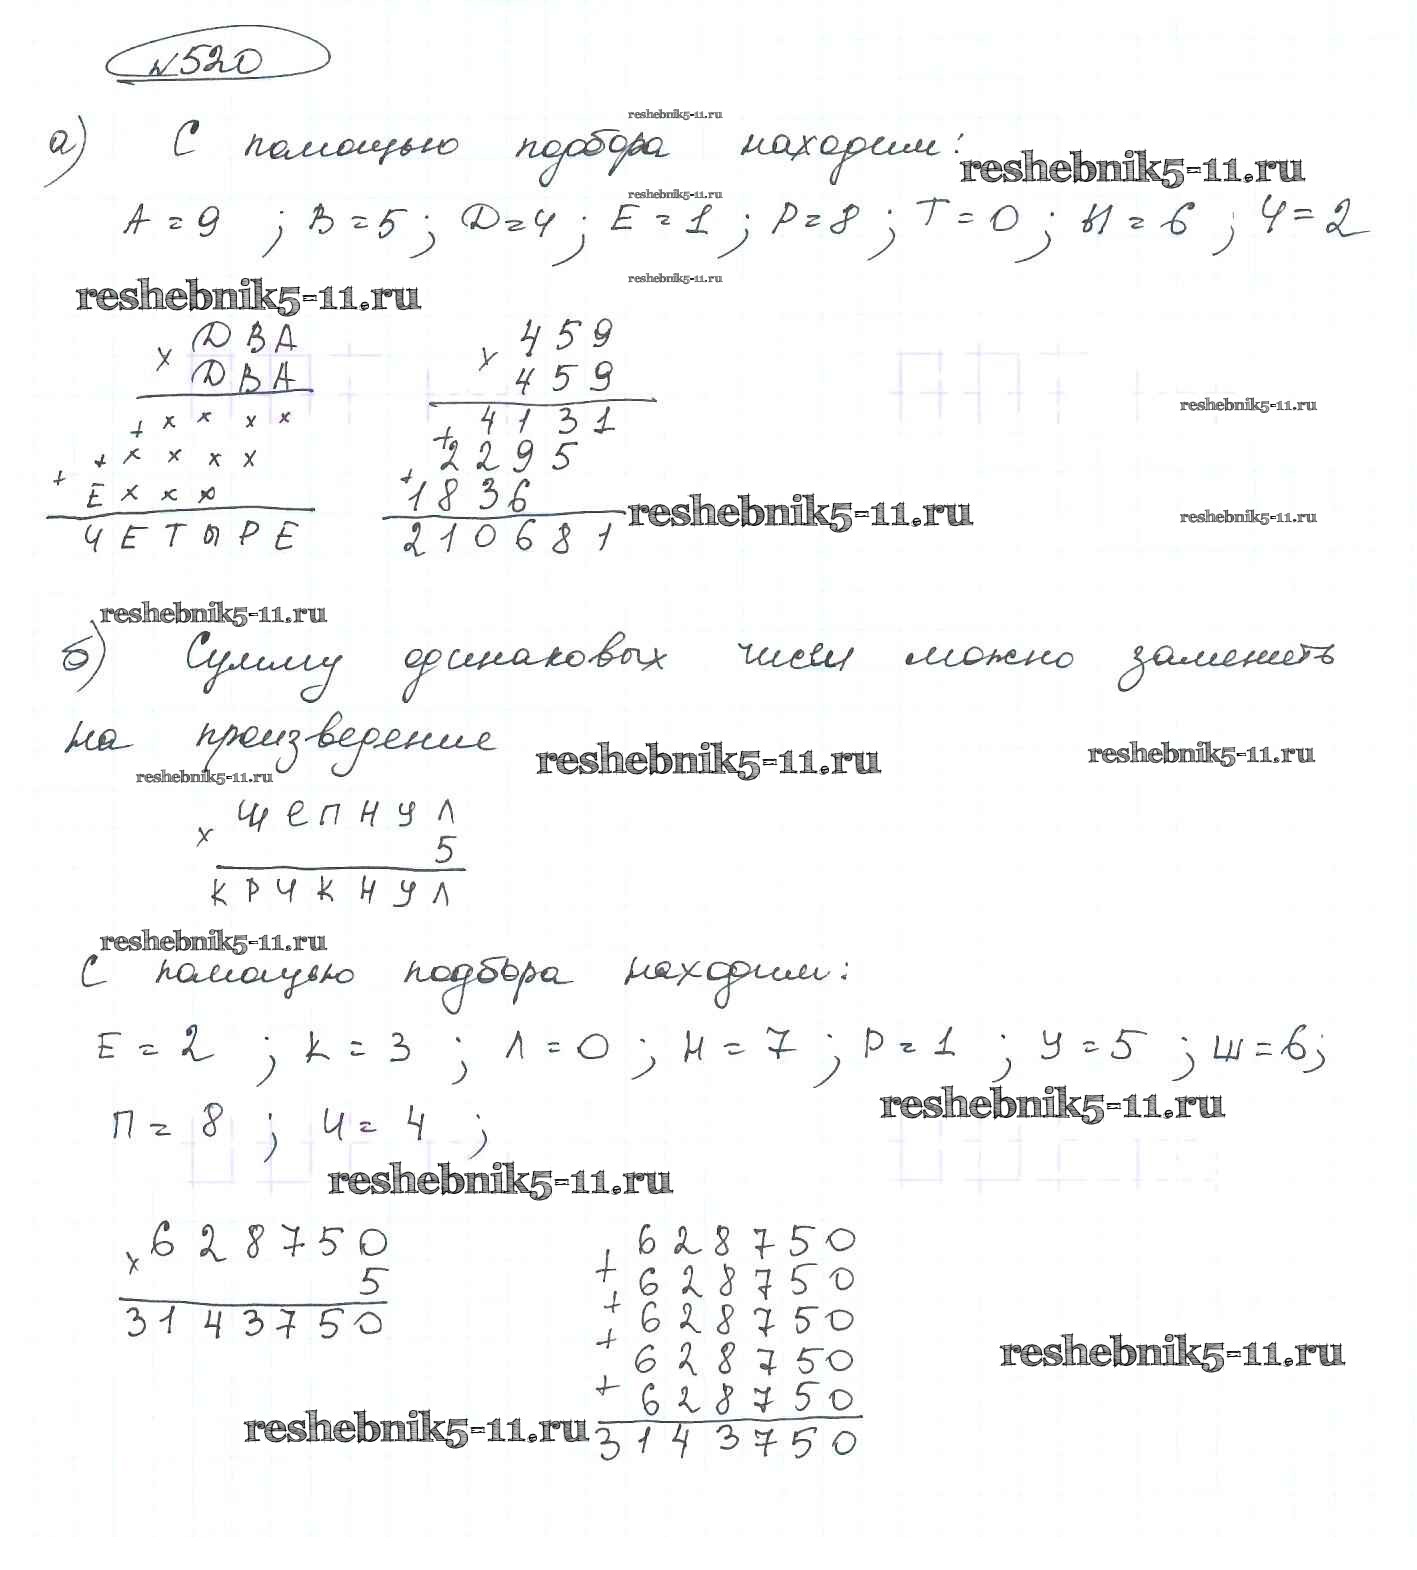 №520
reshebnik5-11.ru
а) С помощью подбора находим:
reshebnik5-11.ru
reshebnik5-11.ru
А = 9 ; В = 5 ; Д = 4 ; Е = 1 ; Р = 8 ; Т = 0 ; Ы = 6 ; Ч = 2
reshebnik5-11.ru
reshebnik5-11.ru
х Д В А
Д В А
+ х х х х
+ х х х х
+ Е х х х
Ч Е Т Ы Р Е
х 4 5 9
4 5 9
4 1 3 1
+ 2 2 9 5
+ 1 8 3 6
2 1 0 6 8 1
reshebnik5-11.ru
reshebnik5-11.ru
reshebnik5-11.ru
reshebnik5-11.ru
б) Сумму одинаковых чисел можно заменить
на произведение
reshebnik5-11.ru
reshebnik5-11.ru
reshebnik5-11.ru
х Щ Е П Н У Л
5
К Р Ч К Н У Л
reshebnik5-11.ru
С помощью подбора находим:
Е = 2 ; К = 3 ; Л = 0 ; Н = 7 ; Р = 1 ; У = 5 ; Ш = 6 ;
reshebnik5-11.ru
П = 8 ; Ч = 4 ;
reshebnik5-11.ru
х 6 2 8 7 5 0
5
3 1 4 3 7 5 0
6 2 8 7 5 0
+ 6 2 8 7 5 0
+ 6 2 8 7 5 0
+ 6 2 8 7 5 0
+ 6 2 8 7 5 0
3 1 4 3 7 5 0
reshebnik5-11.ru
reshebnik5-11.ru